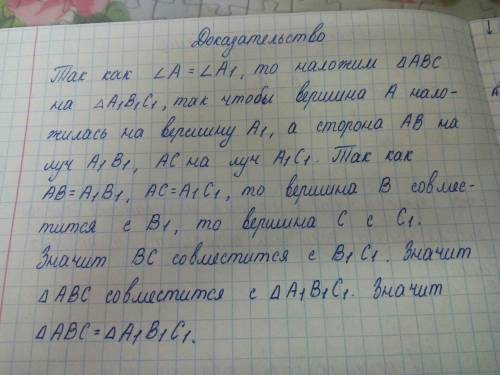 Доказательство
Так как ∠A = ∠A₁, то наложим ΔABC
на ΔA₁B₁C₁, так чтобы вершина A нало-
жилась на вершину A₁, а сторона AB на
луч A₁B₁, AC на луч A₁C₁. Так как
AB=A₁B₁, AC=A₁C₁, то вершина B совмес-
тится с B₁, то вершина C с C₁.
Значит BC совместится с B₁C₁. Значит
ΔABC совместится с ΔA₁B₁C₁. Значит
ΔABC=ΔA₁B₁C₁.